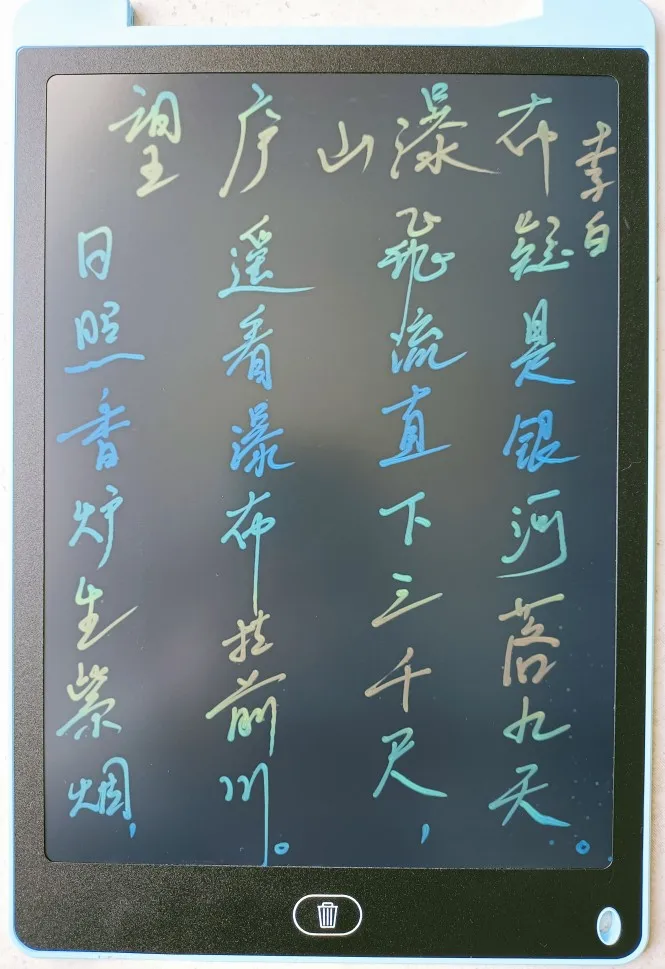 望庐山瀑布
李白
日照香炉生紫烟,
遥看瀑布挂前川。
飛流直下三千尺,
疑是银河落九天。